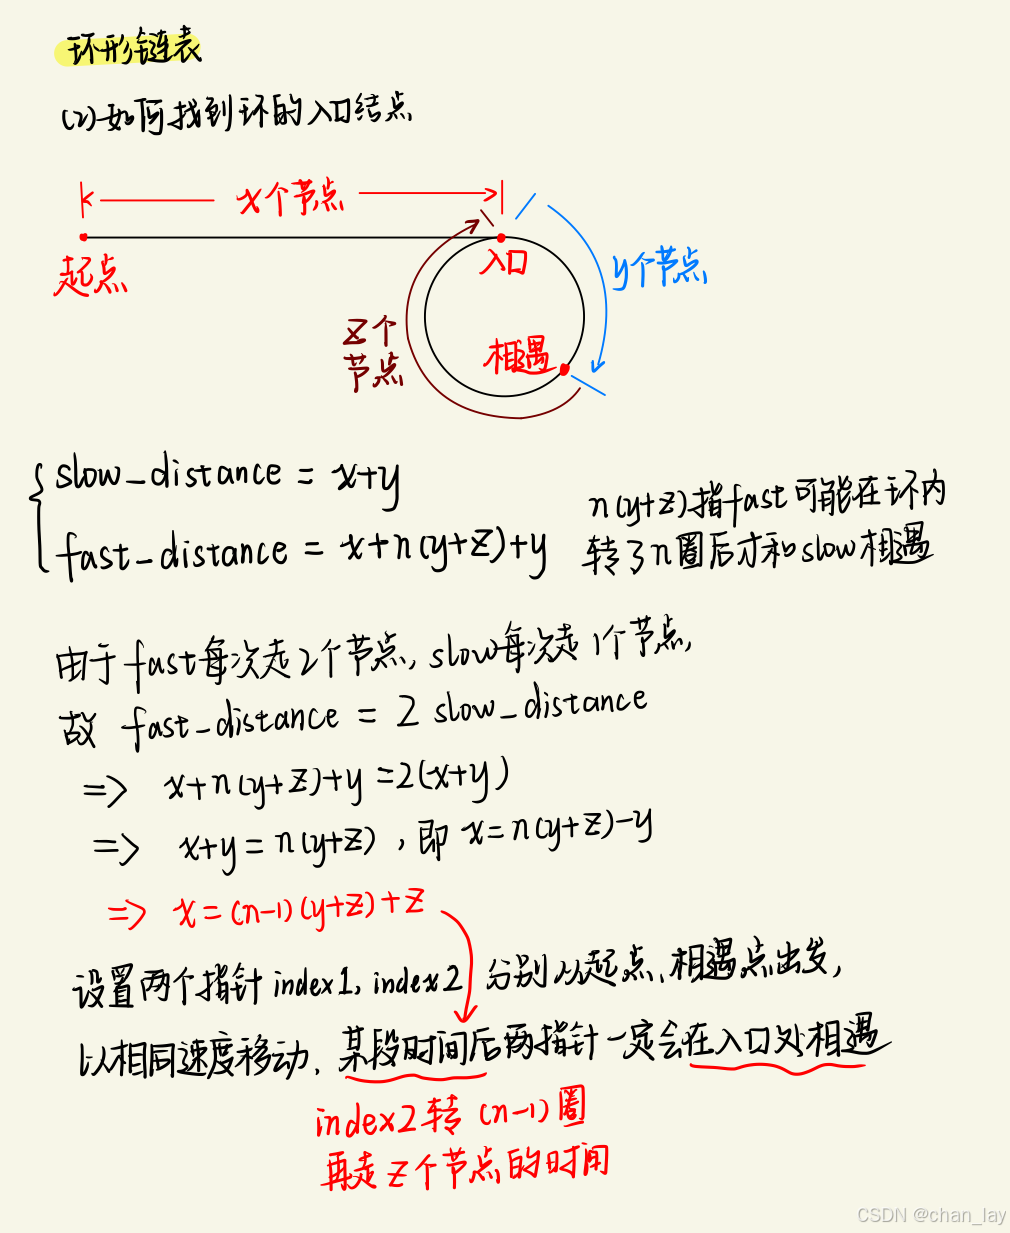 环形链表
(2)如何找到环的入口结点
x个节点
起点
入口
y个节点
z个
节点
相遇
slow_distance = x+y
fast_distance = x+n(y+z)+y
n(y+z)指fast可能在环内
转了n圈后才和slow相遇
由于fast每次走2个节点, slow每次走1个节点,
故 fast_distance = 2 slow_distance
=> x+n(y+z)+y=2(x+y)
=> x+y=n(y+z), 即 x=n(y+z)-y
=> x=(n-1)(y+z)+z
设置两个指针index1, index2 分别从起点、相遇点出发,
以相同速度移动, 某段时间后两指针一定会在入口处相遇
index2转(n-1)圈
再走z个节点的时间
CSDN @chan_lay